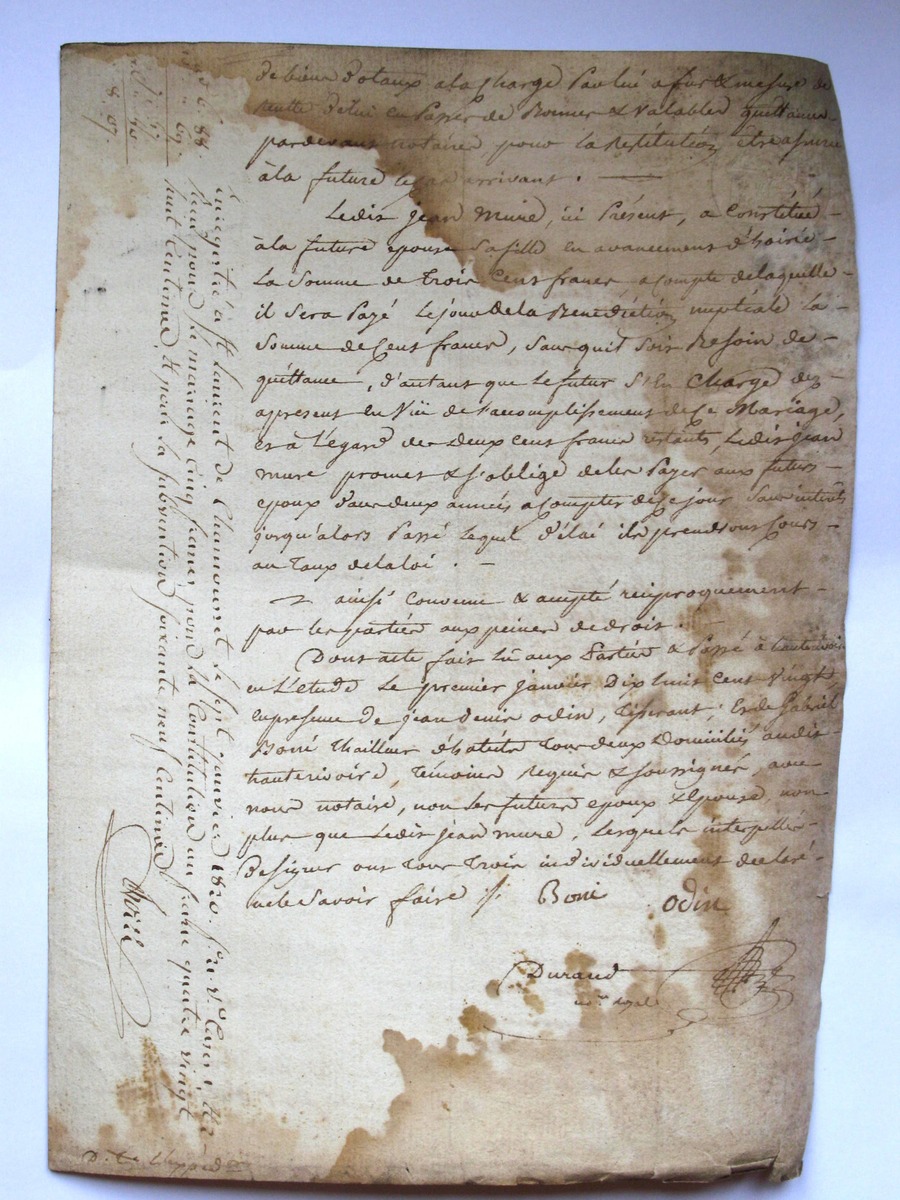 de biens dotaux a la charge par lui a fur & mesure de
recette de lui en passer de bonnes & valables quittances
pardevant notaire pour la restitution être assurée
à la future le cas arrivant .
Ledit jean mure, ici présent, a constitué
à la future epouse sa fille en avancement d'hoirie
la somme de trois cent francs acompte de laquelle
il sera payé le jour de la Bénédiction nuptiale la
somme de Cent francs, sans quil soit besoin de
quittance, d'autant que le futur s'En charge dez
apresent en vüe de l'accomplissement de Ce Mariage,
et à l'égard des deux cent francs restants, Ledit jean
mure promet & s'oblige de les payer aux futurs
epoux dans deux années acompter de ce jour sans intérêts
jusqu'alors passé lequel délai ils prendront cours
au taux de la loi .
ainsi convenu & accepté réciproquement
par les parties aux peines de droit .
Dont acte fait lû aux parties & passé à hauterivoire
en l'etude le premier janvier dix huit cent vingt
en presence de jean denis odin, tisserant, & de Gabriel
Boni thailleur d'habits tous deux domiciliés audit
hauterivoire, témoins requis & soussignés, avec
nous notaire, non les futurs epoux & epouse, non
plus que Ledit jean mure, lesquels interpellés
de signer ont tous trois individuellement declaré
ne le savoir faire /.
Boni odin
Durand
nre royal
Enregistré à St Laurent de Chamousset le sept janvier 1820. f° v° Cases
reçu pour le mariage cinq francs pour la Constitution un franc quatre vingt
huit centimes & pour la subvention soixante neuf centimes